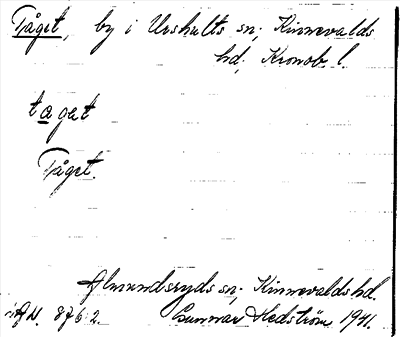 Tåget, by i Urshults sn; Kinnevalds
hd; Kronob. l.
taget
Tåget.
Almundsryds sn; Kinnevalds hd.
876:2. Gunnar Hedström 1941.